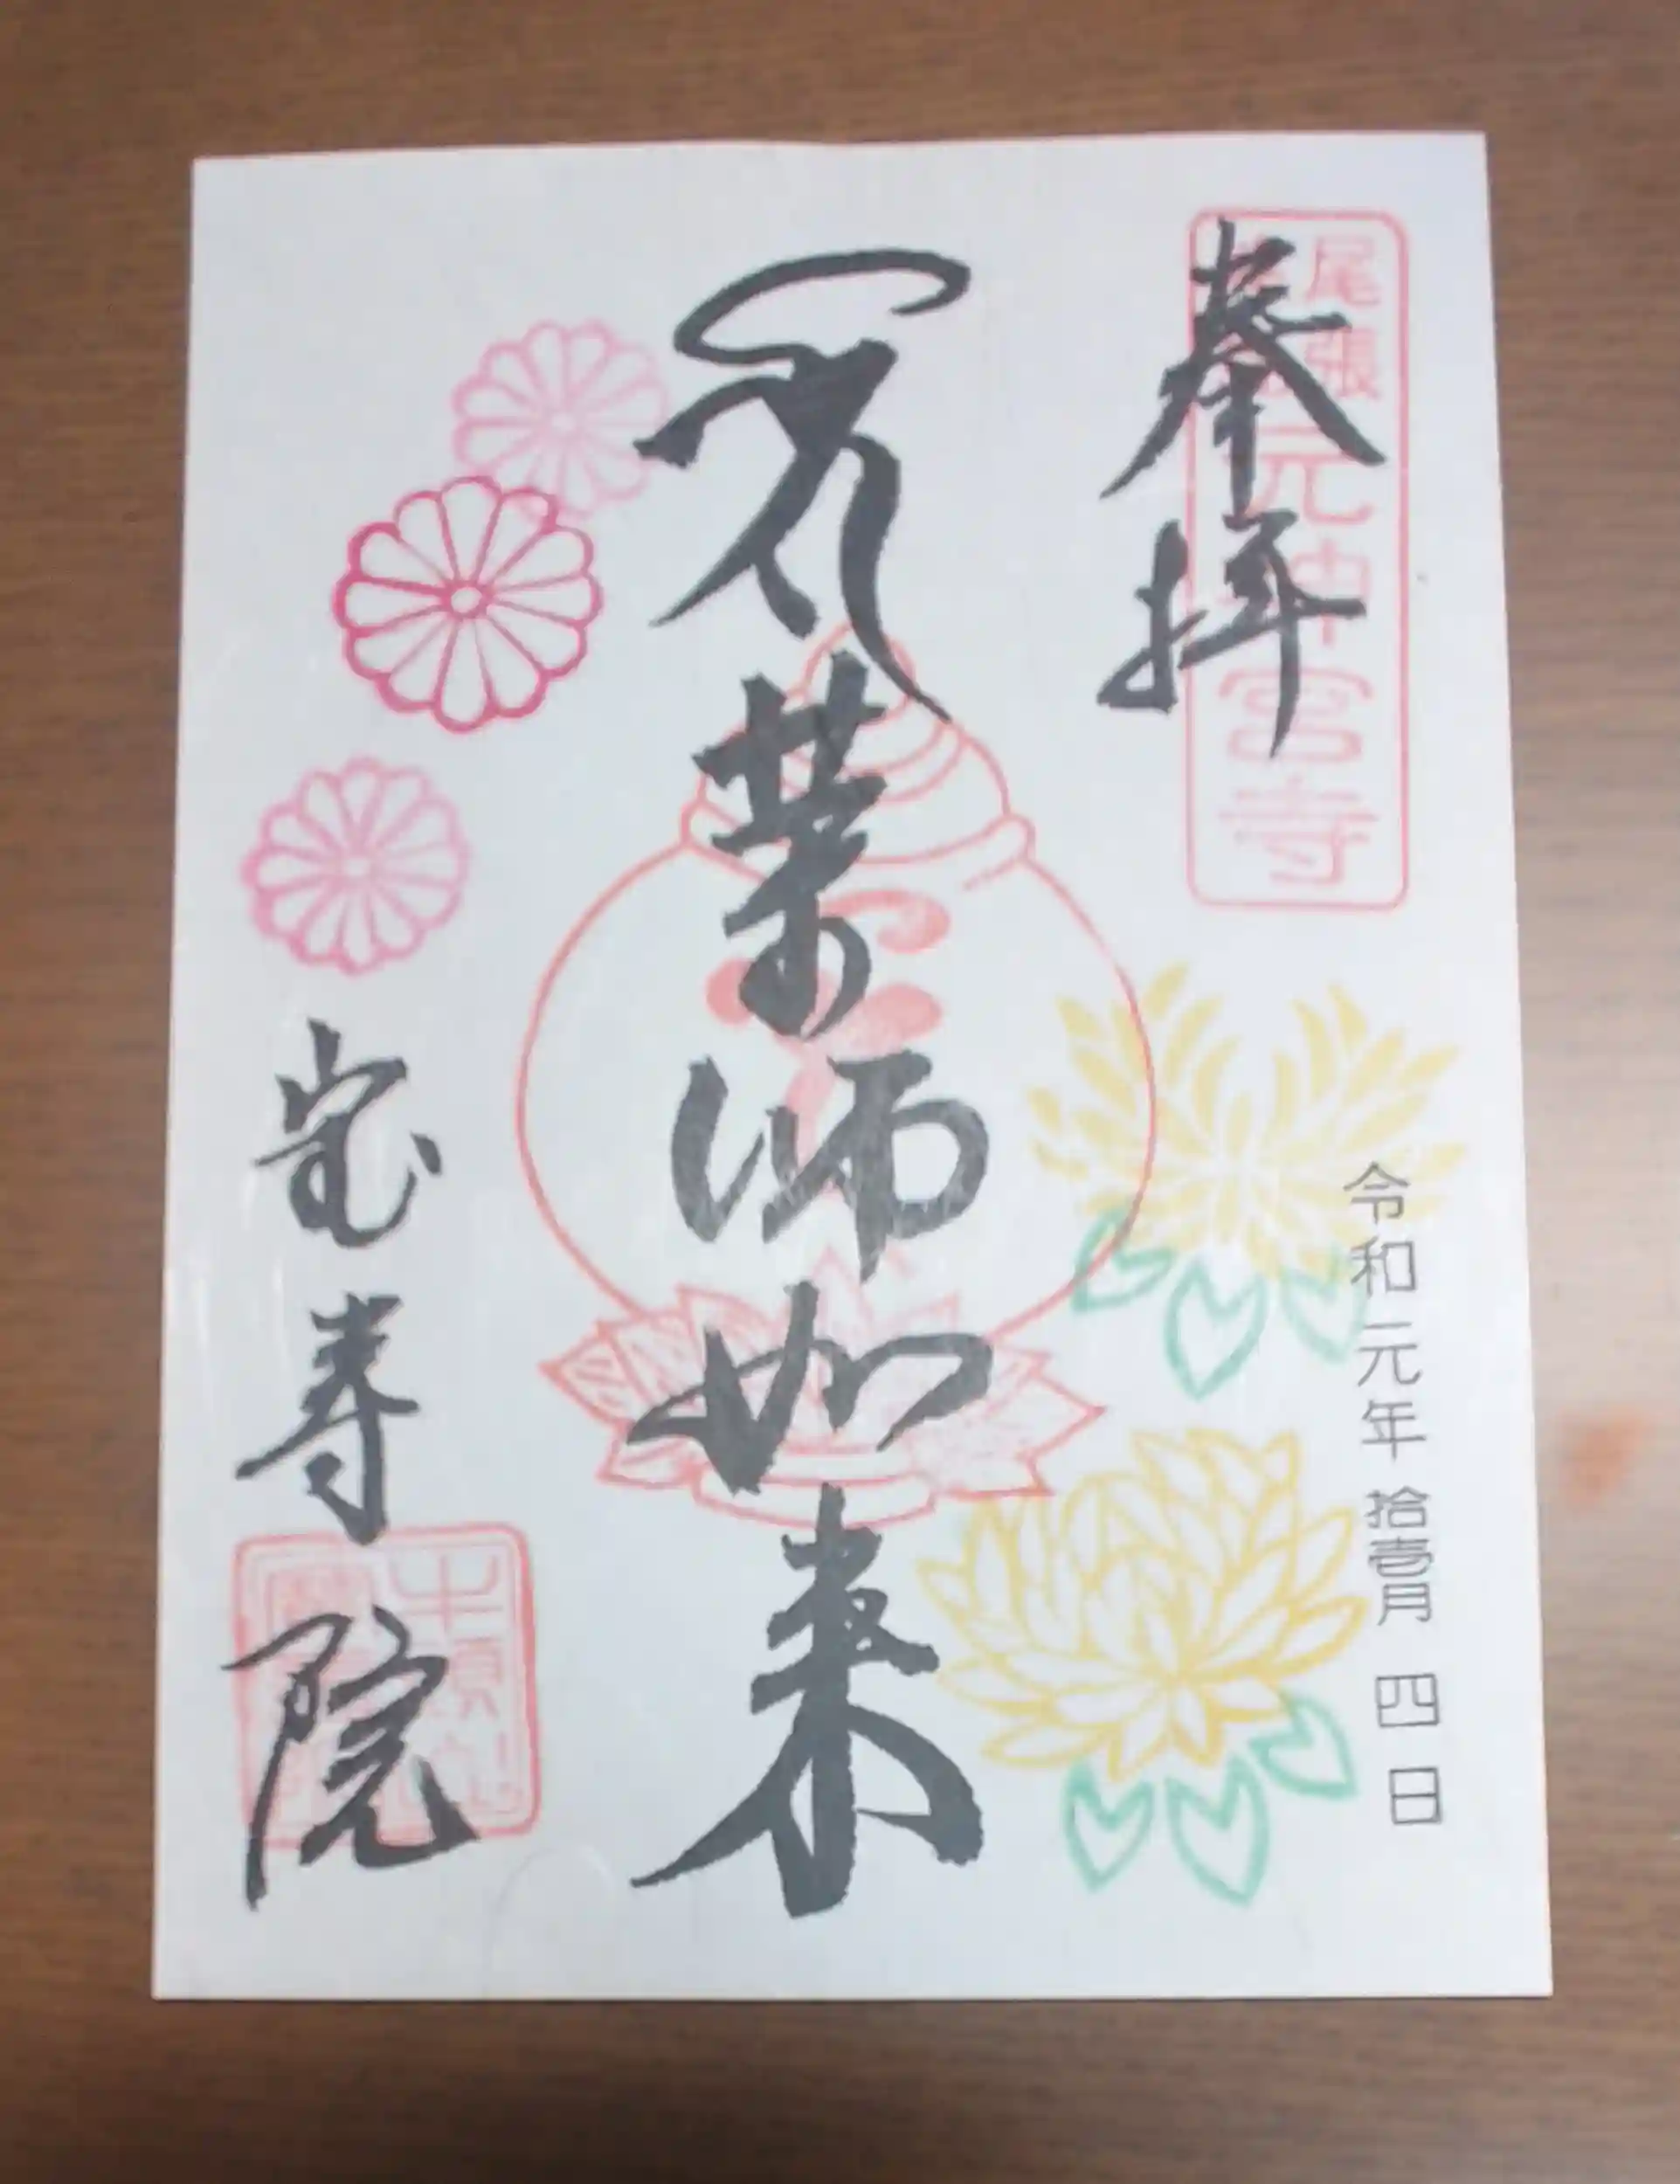 奉拝
尾張
元神宮寺
令和元年 拾壱月 四日
薬師如来
宝寿院